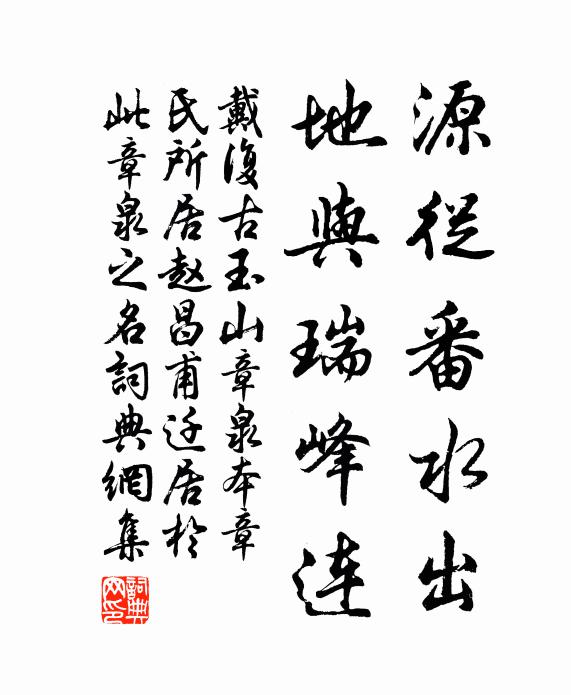 源從番水出
地與瑞峰連
戴復古玉山章泉本章
氏所居赵昌甫迁居於
此章泉之名詞典網集
詞典网印